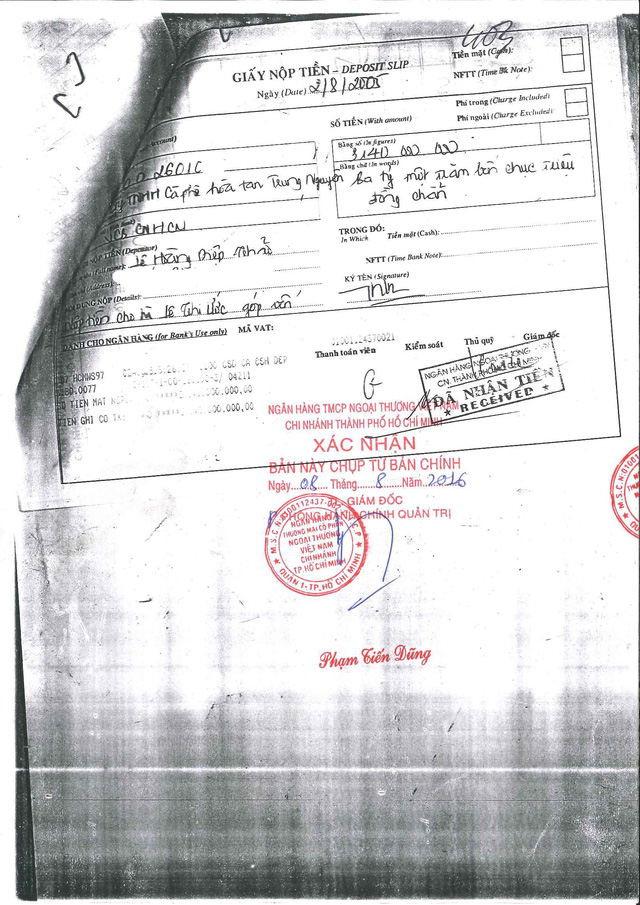 403
Tiền mặt (Cash):
GIẤY NỘP TIỀN – DEPOSIT SLIP
NFTT (Time Bk Note):
Ngày (Date) 2/8/2005
Phí trong (Charge Included)
SỐ TIỀN (With amount)
Phí ngoài (Charge Excluded)
Bằng số (In figures)
3,140 000 000
2601C
Bằng chữ (In words)
TNHH Cà phê hòa tan Trung Nguyên
Ba tỷ một trăm bốn chục triệu
đồng chẵn
VCB CNHCM
TRONG ĐÓ:
In Which
Tiền mặt (Cash):
NỘP TIỀN (Depositor)
Lê Hoàng Diệp Thảo
NFTT (Time Bank Note):
DUNG NỘP (Details):
KÝ TÊN (Signature)
tiền cho bà Lê Thị Ước góp vốn
DÀNH CHO NGÂN HÀNG (for Bank's Use only)
MÃ VAT:
01001.24570021
Thanh toán viên
Kiểm soát
Thủ quỹ
Giám đốc
HCMWS97
CSD CA CSH DEP
04211
TIEN MAT
000.000,00
TIEN GHI CO TK
000.000,00
NGÂN HÀNG NGOẠI THƯƠNG
CN. THÀNH PHỐ HỒ CHÍ MINH
ĐÃ NHẬN TIỀN
★ RECEIVED ★
NGÂN HÀNG TMCP NGOẠI THƯƠNG VIỆT NAM
CHI NHÁNH THÀNH PHỐ HỒ CHÍ MINH
XÁC NHẬN
BẢN NÀY CHỤP TỪ BẢN CHÍNH
Ngày 08 Tháng 8 Năm 2016
GIÁM ĐỐC
PHÒNG HÀNH CHÍNH QUẢN TRỊ
NGÂN HÀNG
THƯƠNG MẠI CỔ PHẦN
NGOẠI THƯƠNG
VIỆT NAM
CHI NHÁNH
TP HỒ CHÍ MINH
QUẬN 1 - TP. HỒ CHÍ MINH
Phạm Tiến Dũng